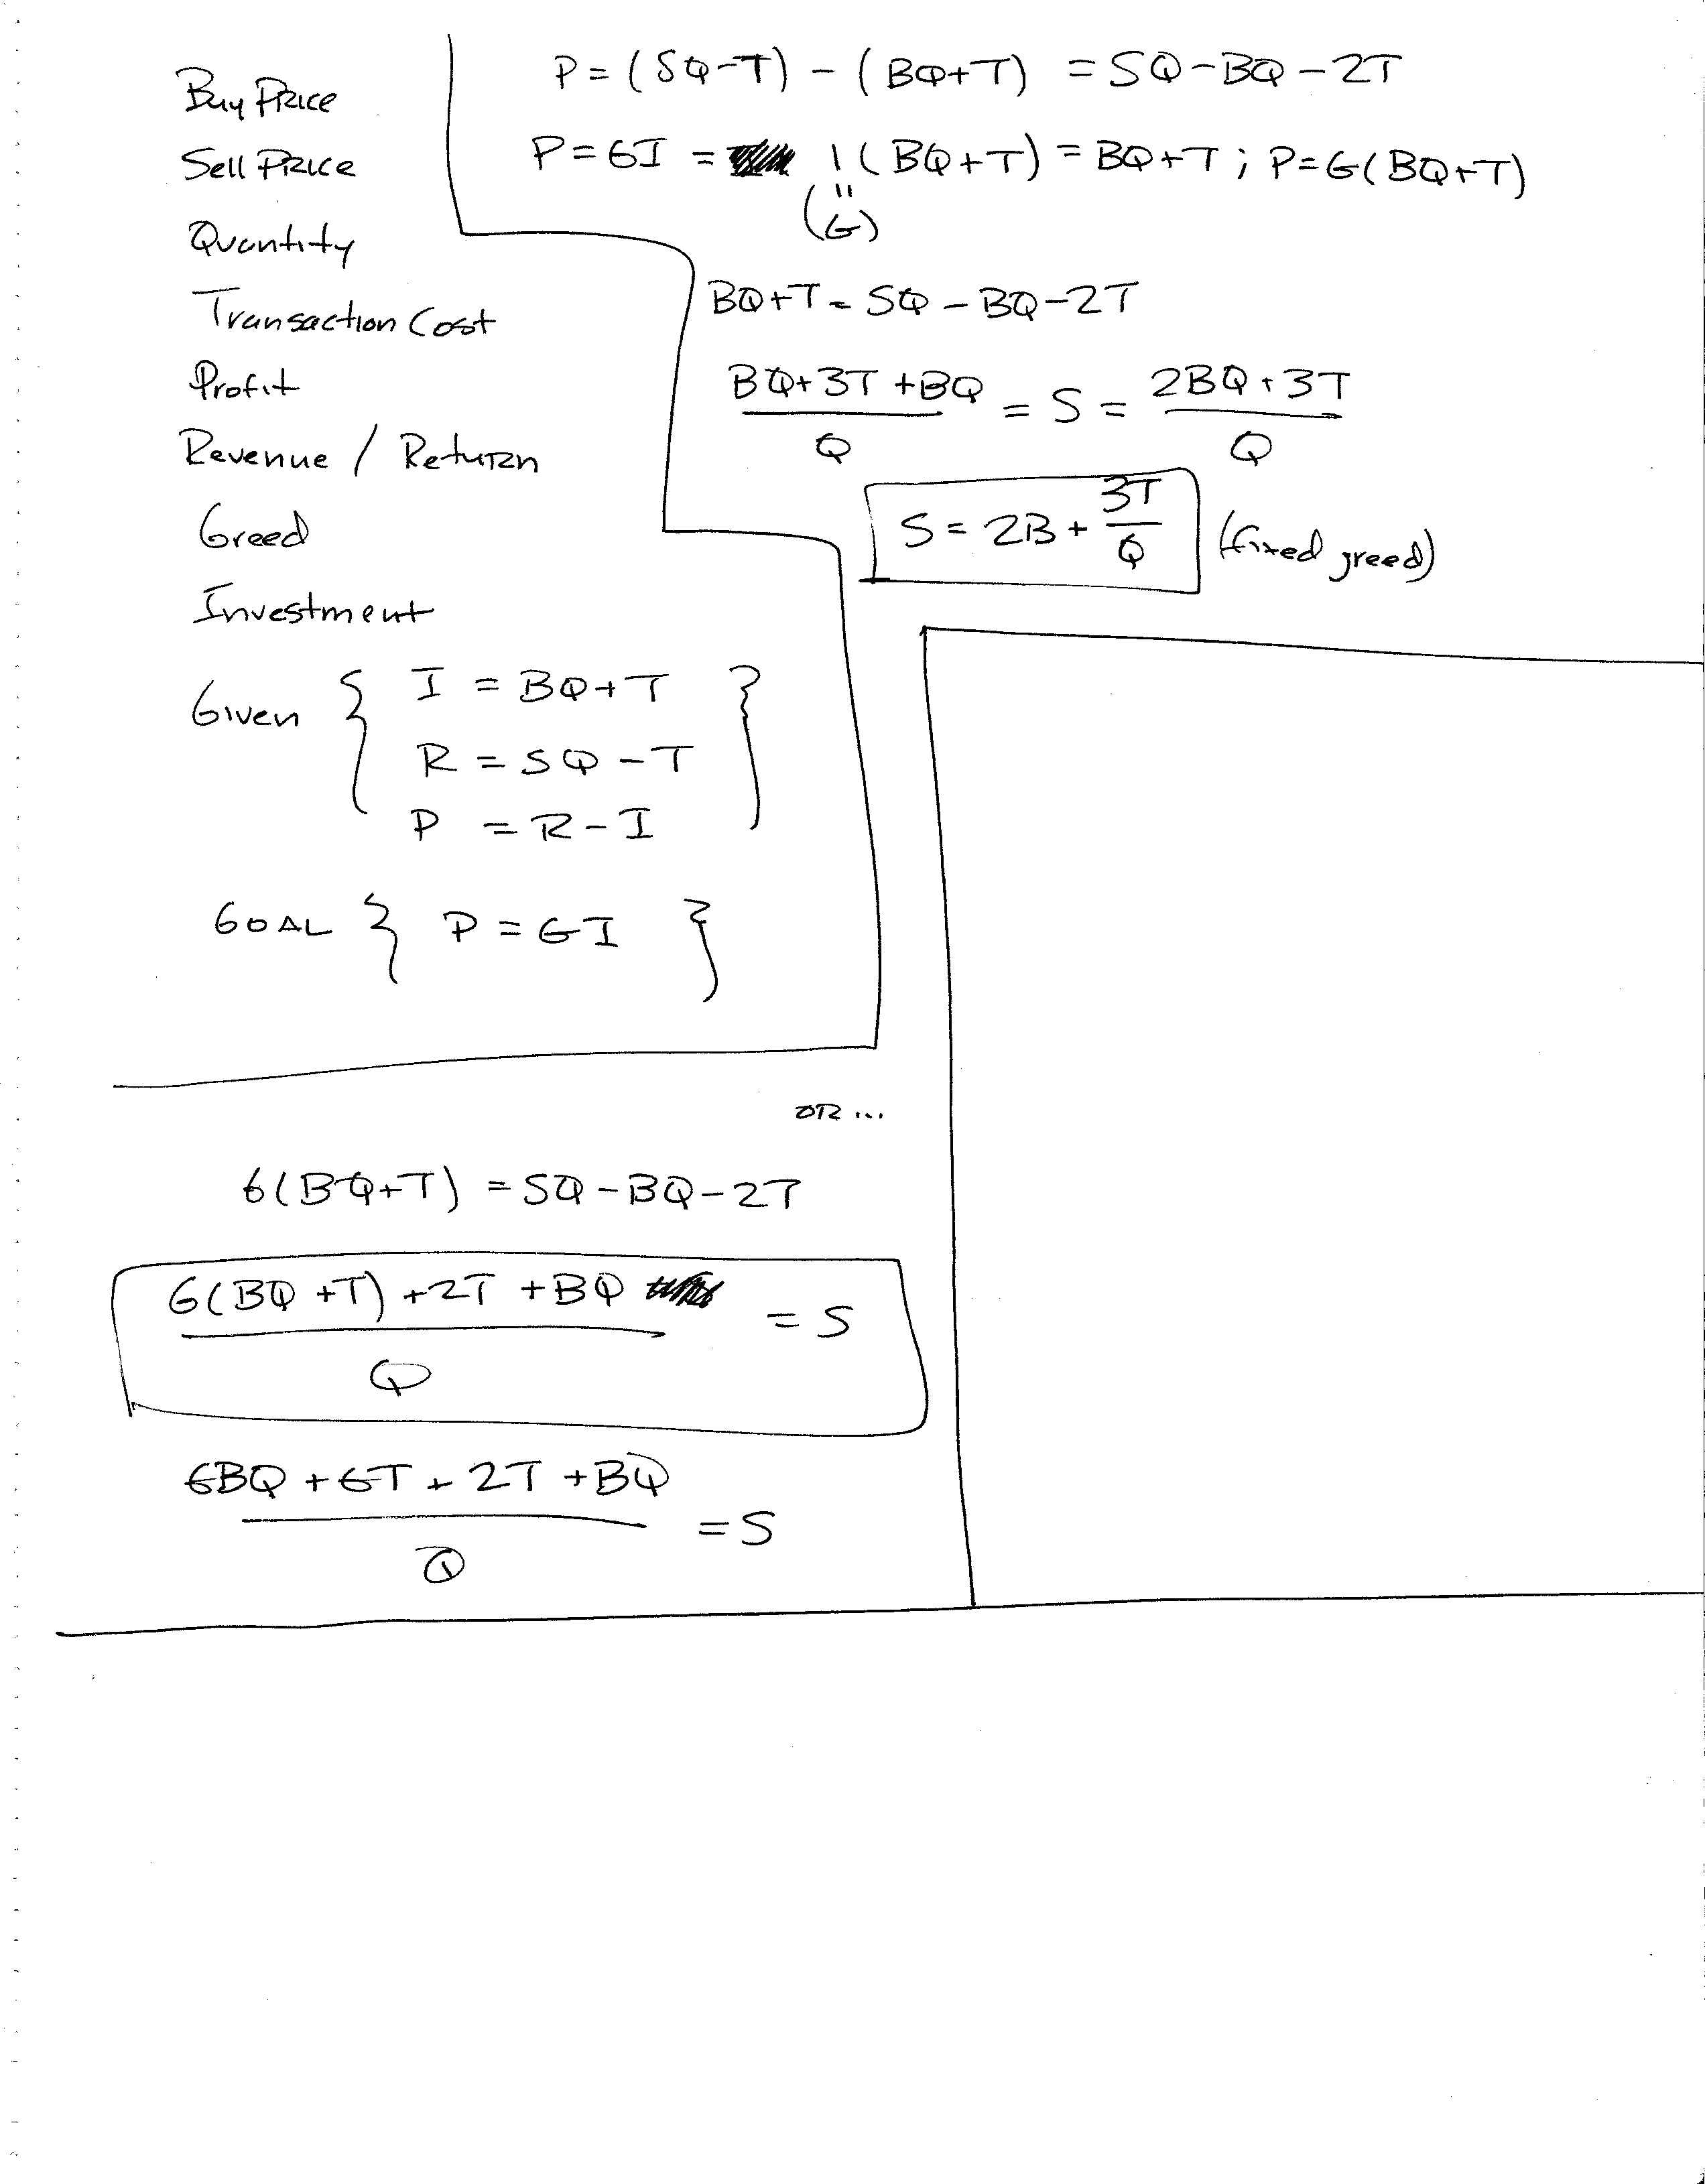 Buy Price
Sell Price
Quantity
Transaction Cost
Profit
Revenue / Return
Greed
Investment
Given { I = BQ+T }
R = SQ - T
P = R - I
GOAL { P = GI }
P = (SQ-T) - (BQ+T) = SQ - BQ - 2T
P = GI = 1(BQ+T) = BQ+T ; P=G(BQ+T)
"
(G)
BQ+T = SQ - BQ - 2T
BQ+3T+BQ / Q = S = 2BQ+3T / Q
S = 2B + 3T / Q (fixed greed)
OR ...
G(BQ+T) = SQ - BQ - 2T
G(BQ+T) + 2T + BQ / Q = S
GBQ + GT + 2T + BQ / Q = S